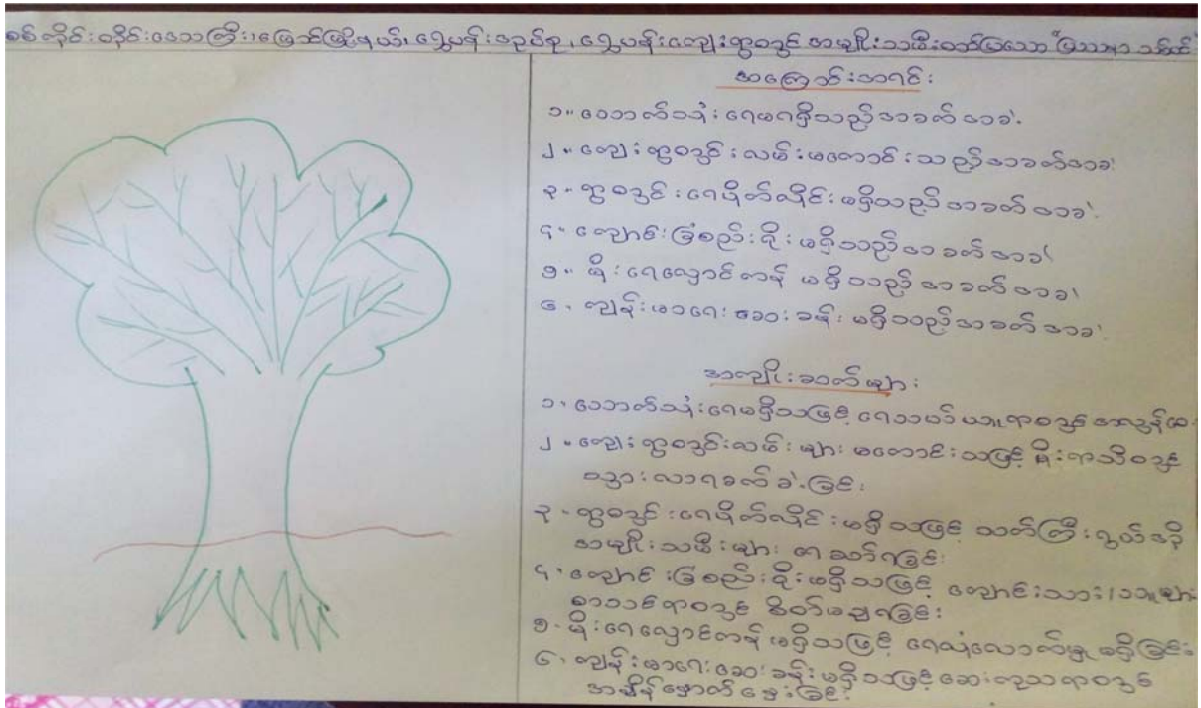 စစ်ကိုင်းတိုင်းဒေသကြီး၊ မြို့နယ်၊ ရွှေပန်းအုပ်စု၊ ရွှေပန်းကျေးရွာတွင် အမျိုးသမီး "ပြဿနာ သစ်ပင်"
အကြောင်းအရင်း
၁။ သောက်သုံးရေမရှိသည့်အခက်အခဲ။
၂။ ကျေးရွာတွင်းလမ်းမကောင်းသည့်အခက်အခဲ။
၃။ ရွာတွင်းရေပိုက်လိုင်းမရှိသည့်အခက်အခဲ။
၄။ ကျောင်းခြံစည်းရိုးမရှိသည့်အခက်အခဲ
၅။ မိုးရေလှောင်ကန် မရှိသည့်အခက်အခဲ
၆။ ကျန်းမာရေးဆေးခန်းမရှိသည့်အခက်အခဲ။
အကျိုးဆက်များ
၁။ သောက်သုံးရေမရှိသဖြင့် ရေသယ်ယူရာတွင်
၂။ ကျေးရွာတွင်းလမ်းများ မကောင်းသဖြင့် မိုးရာသီတွင်
သွားလာရခက်ခဲခြင်း
၃။ ရွာတွင်းရေပိုက်လိုင်းမရှိသဖြင့် သက်ကြီးရွယ်အို
အမျိုးသမီးများ ရေဆယ်ရခြင်း
၄။ ကျောင်းခြံစည်းရိုးမရှိသဖြင့် ကျောင်းသား/သူများ
စာသင်ရာတွင် စိတ်မချရခြင်း
၅။ မိုးရေလှောင်ကန်မရှိသဖြင့် ရေလုံလောက်မှုမရှိခြင်း
၆။ ကျန်းမာရေးဆေးခန်းမရှိသဖြင့် ဆေးကုသရာတွင်
အချိန်နှောင့်နှေးခြင်း